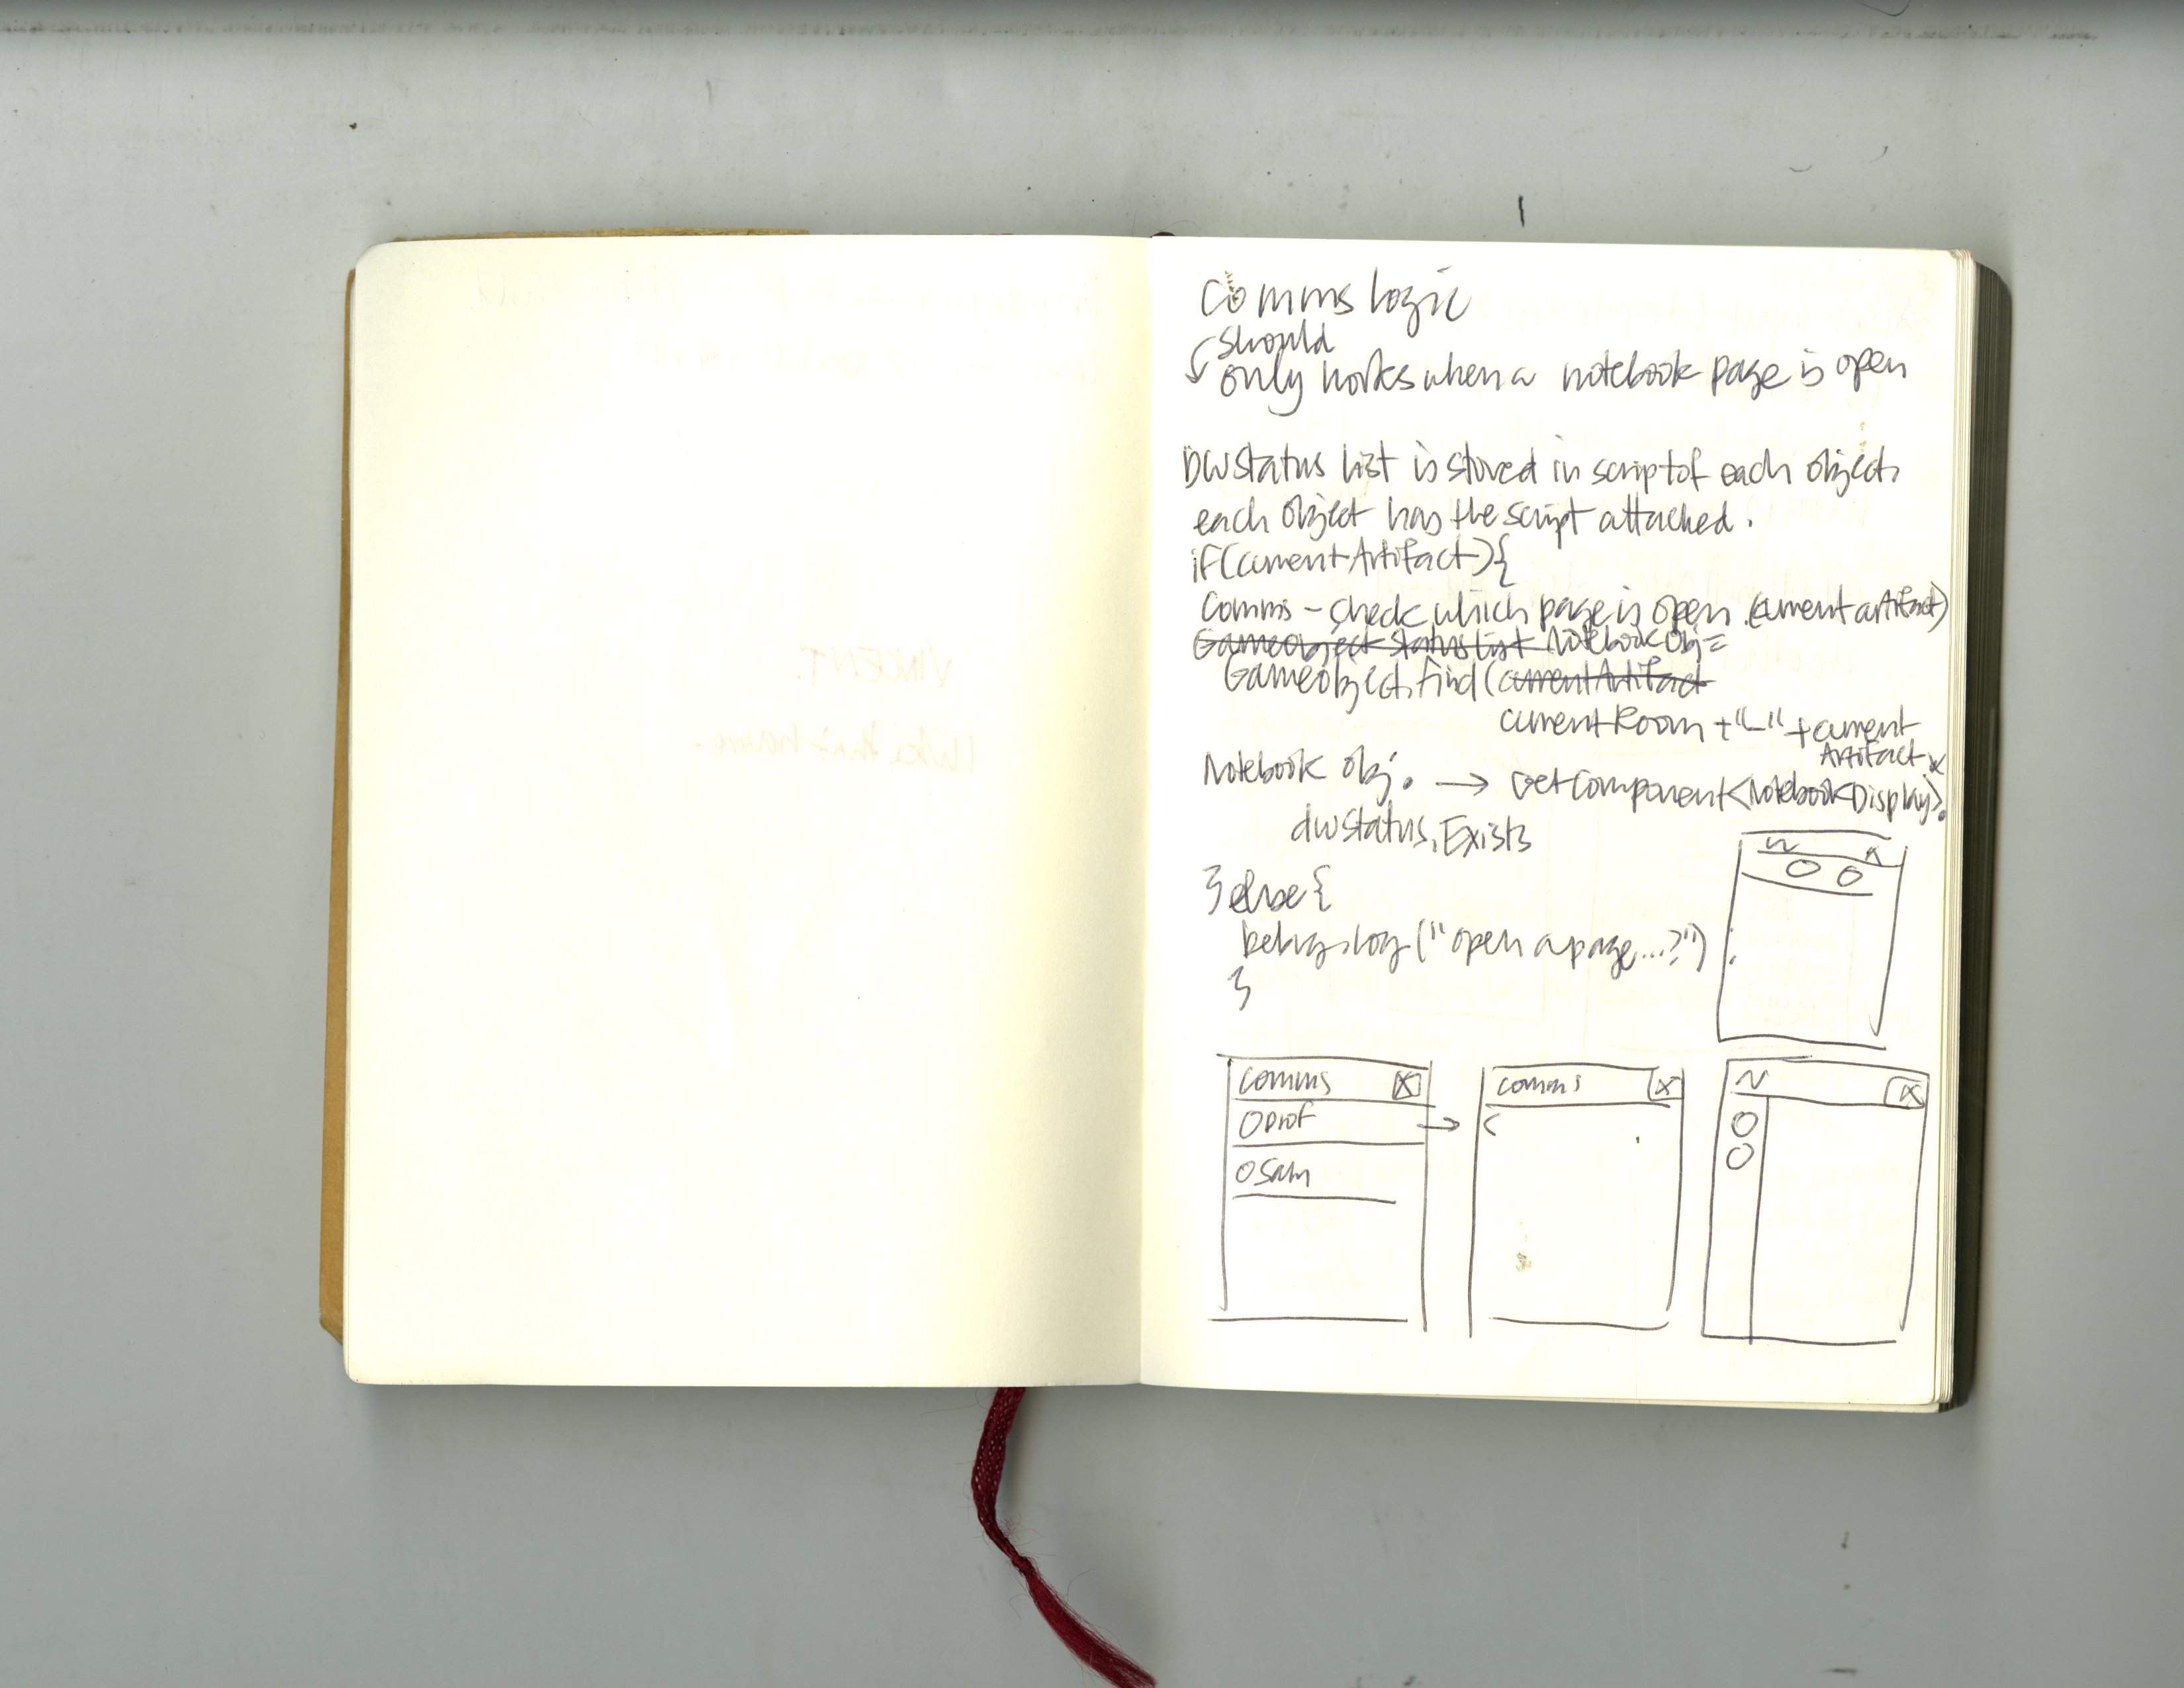 Comms logic
should
only works when a notebook page is open
DW status list is stored in script of each object,
each object has the script attached.
if(currentArtifact){
Comms - check which page is open (current artifact)
Gameobject statuslist Notebook obj =
Gameobject.Find(currentArtifact
currentRoom + "_" + current
Artifact
Notebook obj. → GetComponent<NotebookDisplay>.
dwstatus.Exists
} else {
Debug.log("open a page...?")
}
comms X
prof
sam
comms X
<
X
X
VINCENT.
I like that name.